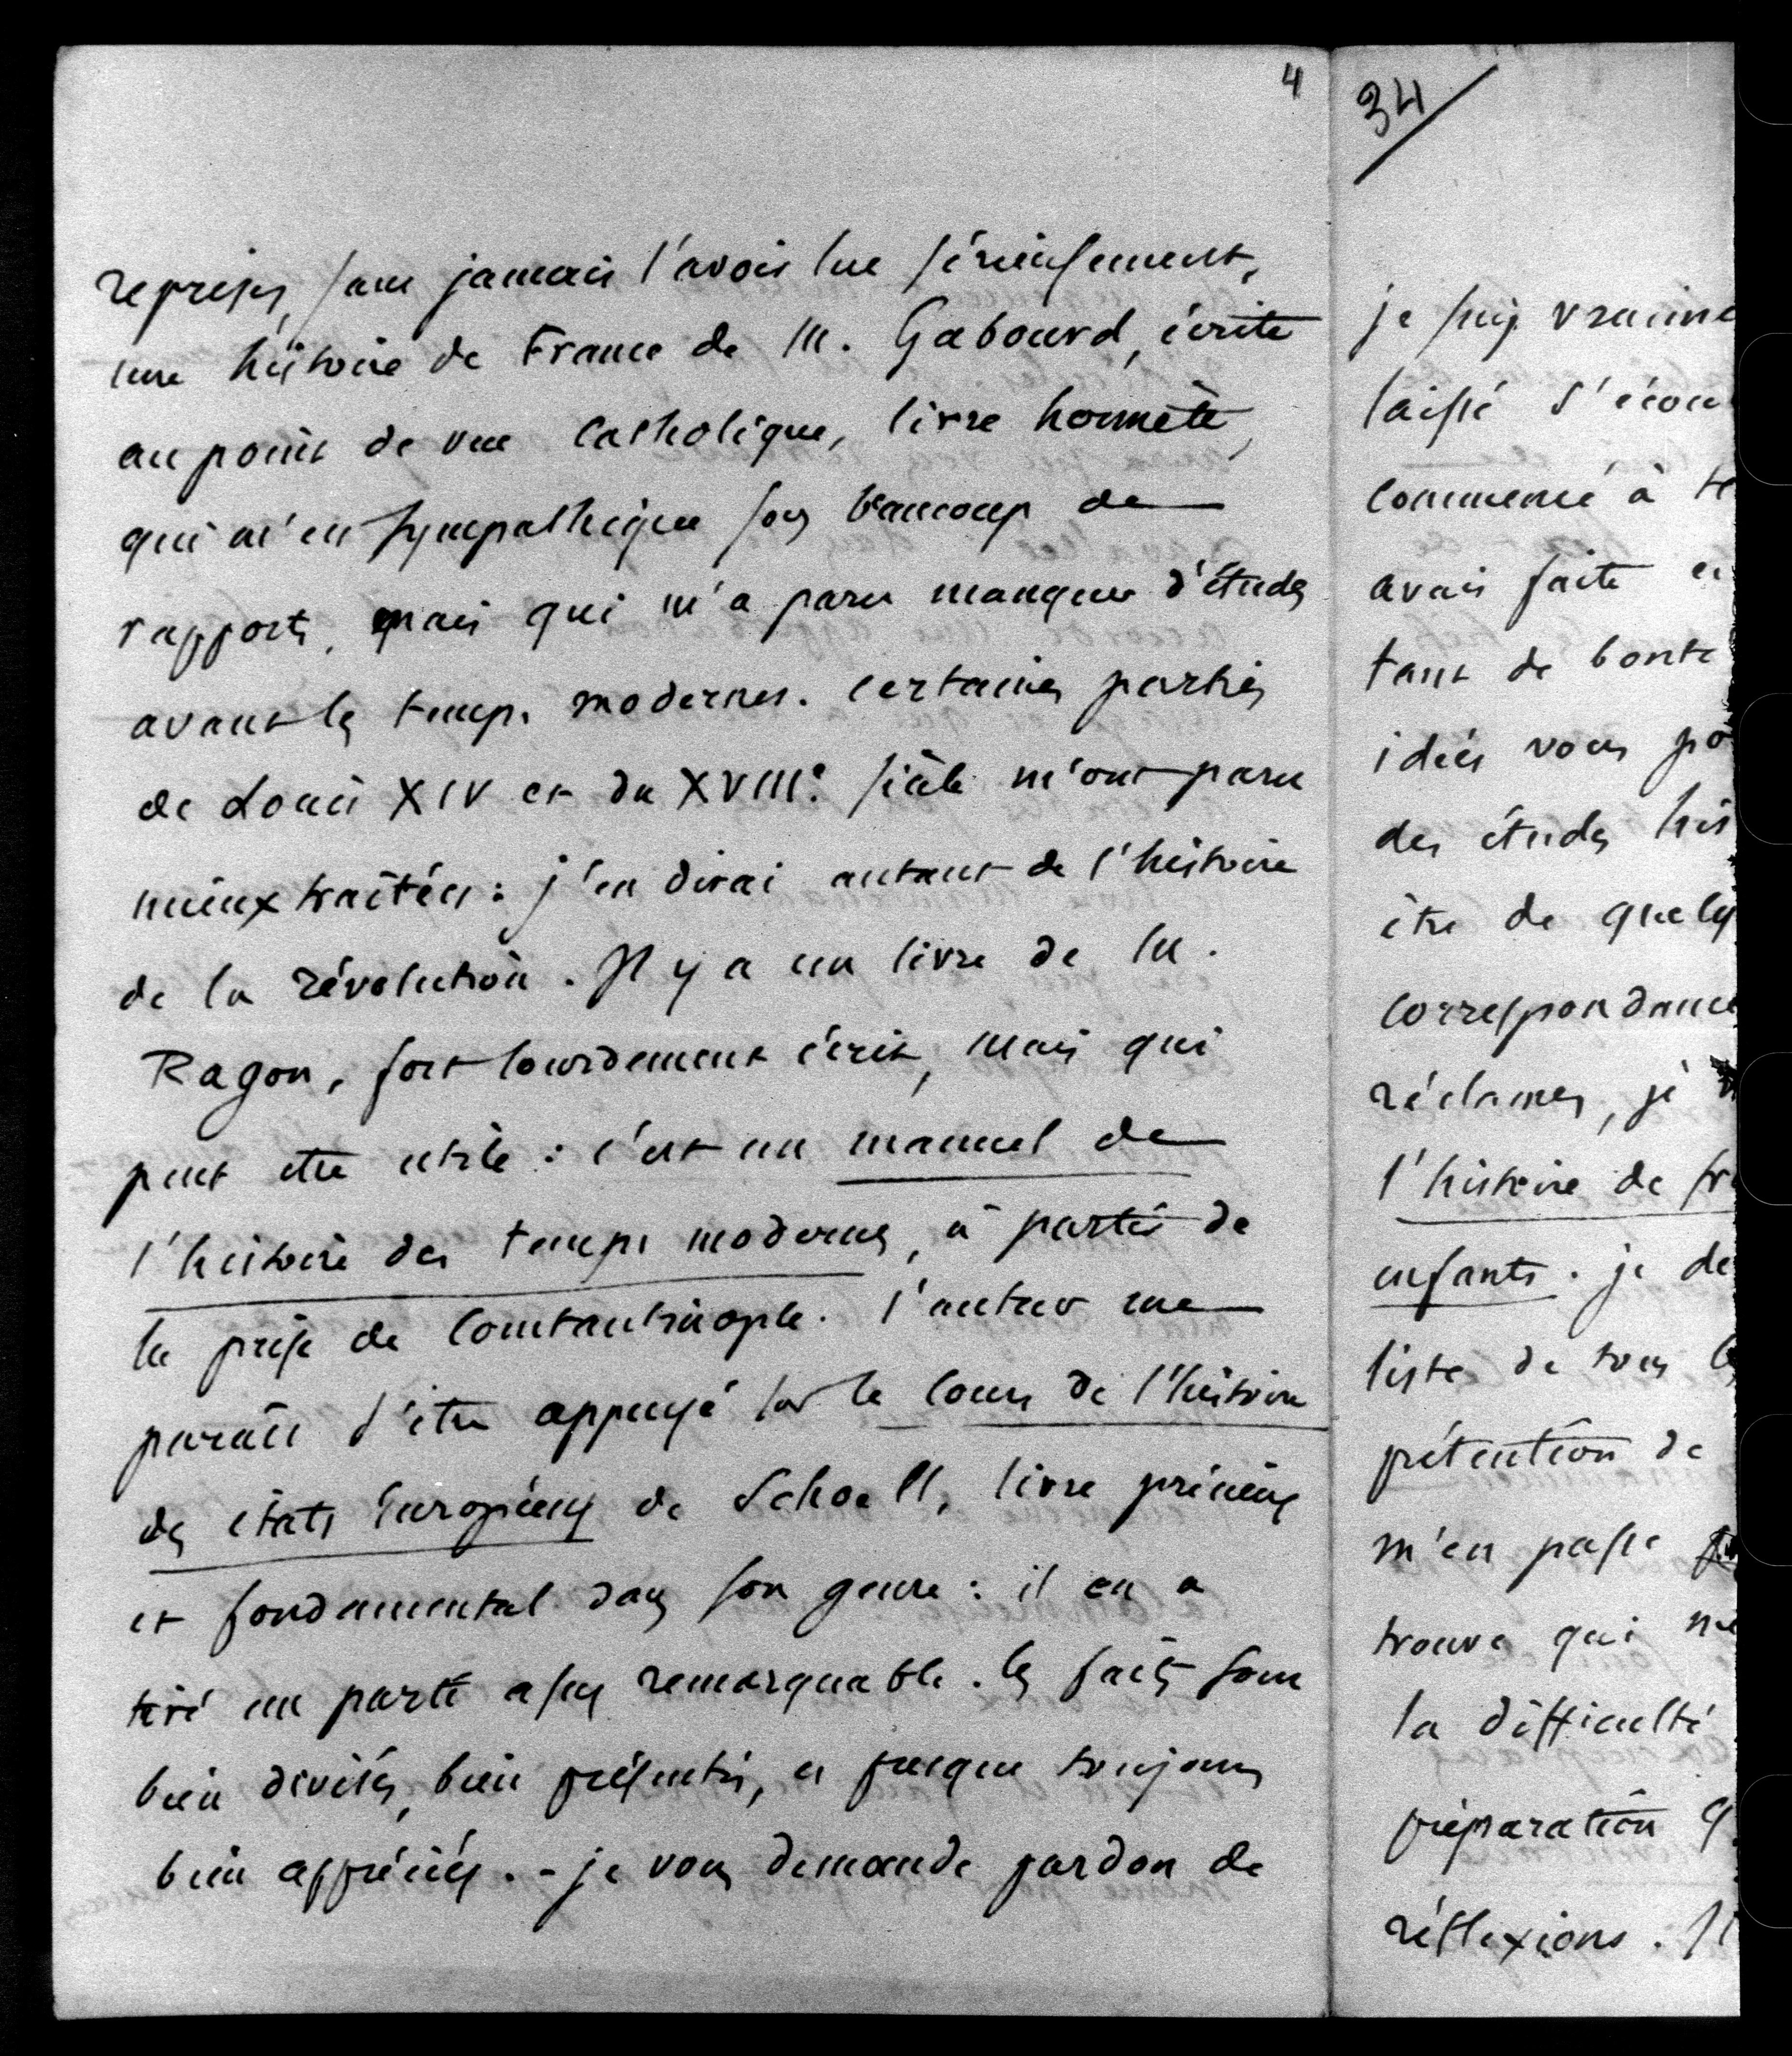 4
reprises, sans jamais l'avoir lue sérieusement,
une histoire de France de M. Gabourd, écrite
au point de vue catholique, livre honnête,
qui m'est sympathique sous beaucoup de
rapports, mais qui m'a paru manquer d'études
avant les temps modernes. certaines parties
de Louis XIV et du XVIIIe siècle m'ont paru
mieux traitées : j'en dirai autant de l'histoire
de la révolution. Il y a un livre de M.
Ragon, fort lourdement écrit, mais qui
peut être utile : c'est un manuel de
l'histoire des temps modernes, à partir de
la prise de Constantinople. l'auteur me
paraît s'être appuyé sur le cours de l'histoire
des états Européens de Schoell, livre précieux
et fondamental dans son genre : il en a
tiré un parti assez remarquable. les faits sont
bien divisés, bien présentés, et presque toujours
bien appréciés. - je vous demande pardon de
34
je suis vraime
laissé s'écou
commencé à te
avais faite
tant de bonté
idées vous po
des études his
être de quelq
correspondance
réclames, je
l'histoire de fr
enfants. je de
liste de tous
prétention de
m'en passe
trouve qui ne
la difficulté
préparation q
réflexions. Il